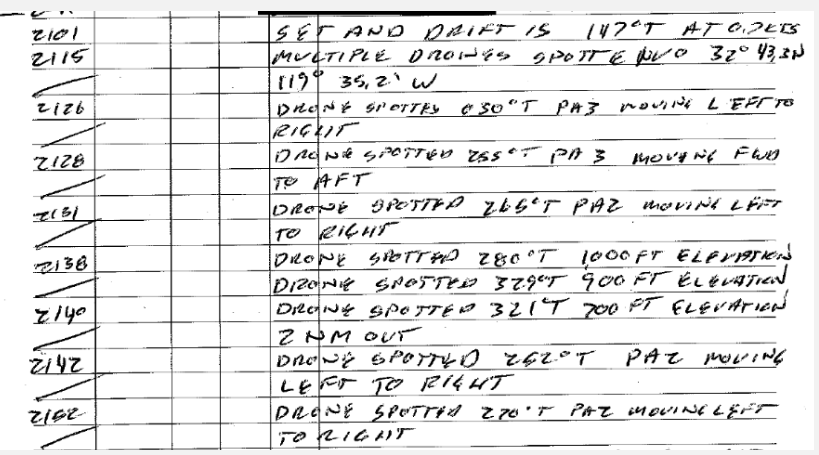 2101 SET AND DRIFT IS 147°T AT 0.7KTS
2115 MULTIPLE DRONES SPOTTE 32° 43,3N
119° 35,2' W
2126 DRONE SPOTTED 050°T PA3 MOVING LEFT TO
RIGHT
2128 DRONE SPOTTED 255°T PA 3 MOVING FWD
TO AFT
2131 DRONE SPOTTED 265°T PA2 MOVING LEFT
TO RIGHT
2138 DRONE SPOTTED 280°T 1000 FT ELEVATION
DRONE SPOTTED 329°T 900 FT ELEVATION
2140 DRONE SPOTTED 321°T 700 FT ELEVATION
2 NM OUT
2142 DRONE SPOTTED 262°T PA2 MOVING
LEFT TO RIGHT
2152 DRONE SPOTTED 270°T PA2 MOVING LEFT
TO RIGHT